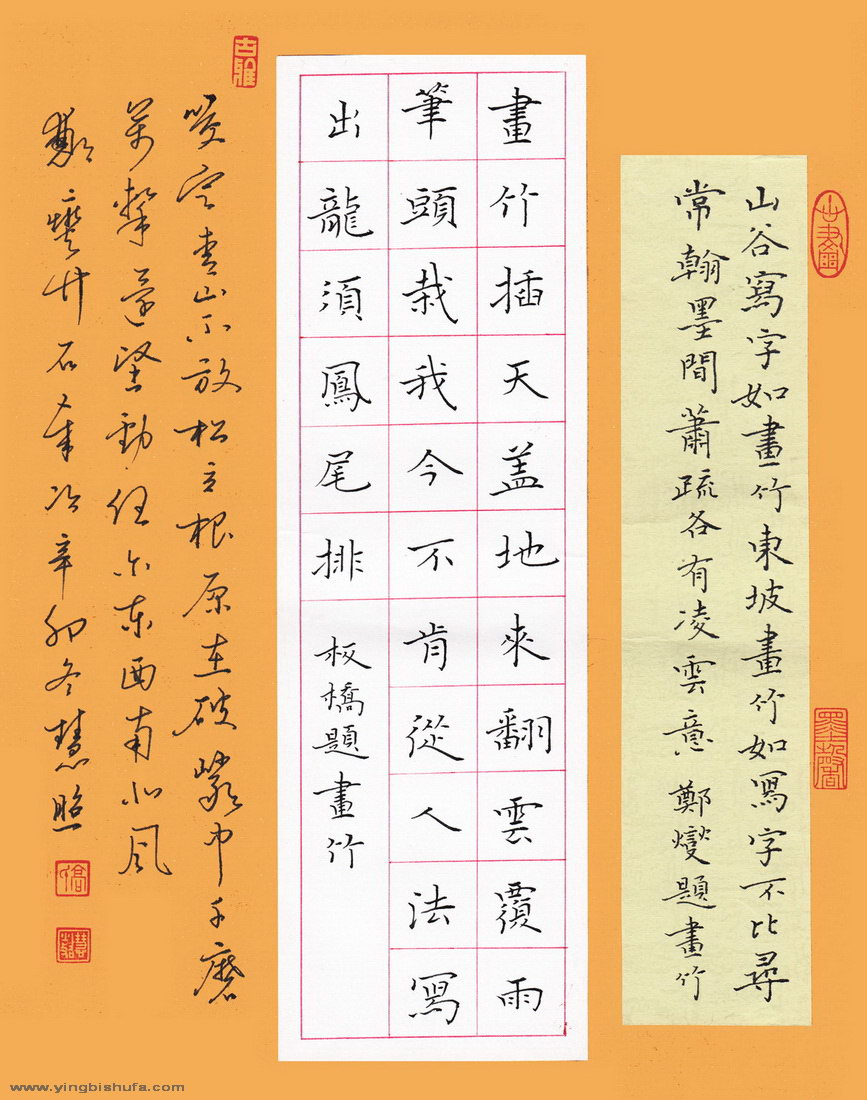 山谷寫字如畫竹東坡畫竹如冩字不比尋
常翰墨間蕭疏各有凌雲意 鄭燮題畫竹
畫竹插天盖地來翻雲覆雨
筆頭栽我今不肯從人法冩
出龍須鳳尾排 板橋題畫竹
古雅
咬定青山不放松立根原在破巖中千磨
萬擊還堅勁任尔東西南北風
鄭燮竹石歲次辛卯冬慧照
墨馨
www.yingbishufa.com